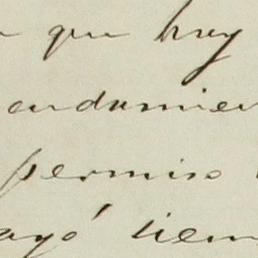 que hay
andamien
permiso
ayó tiem